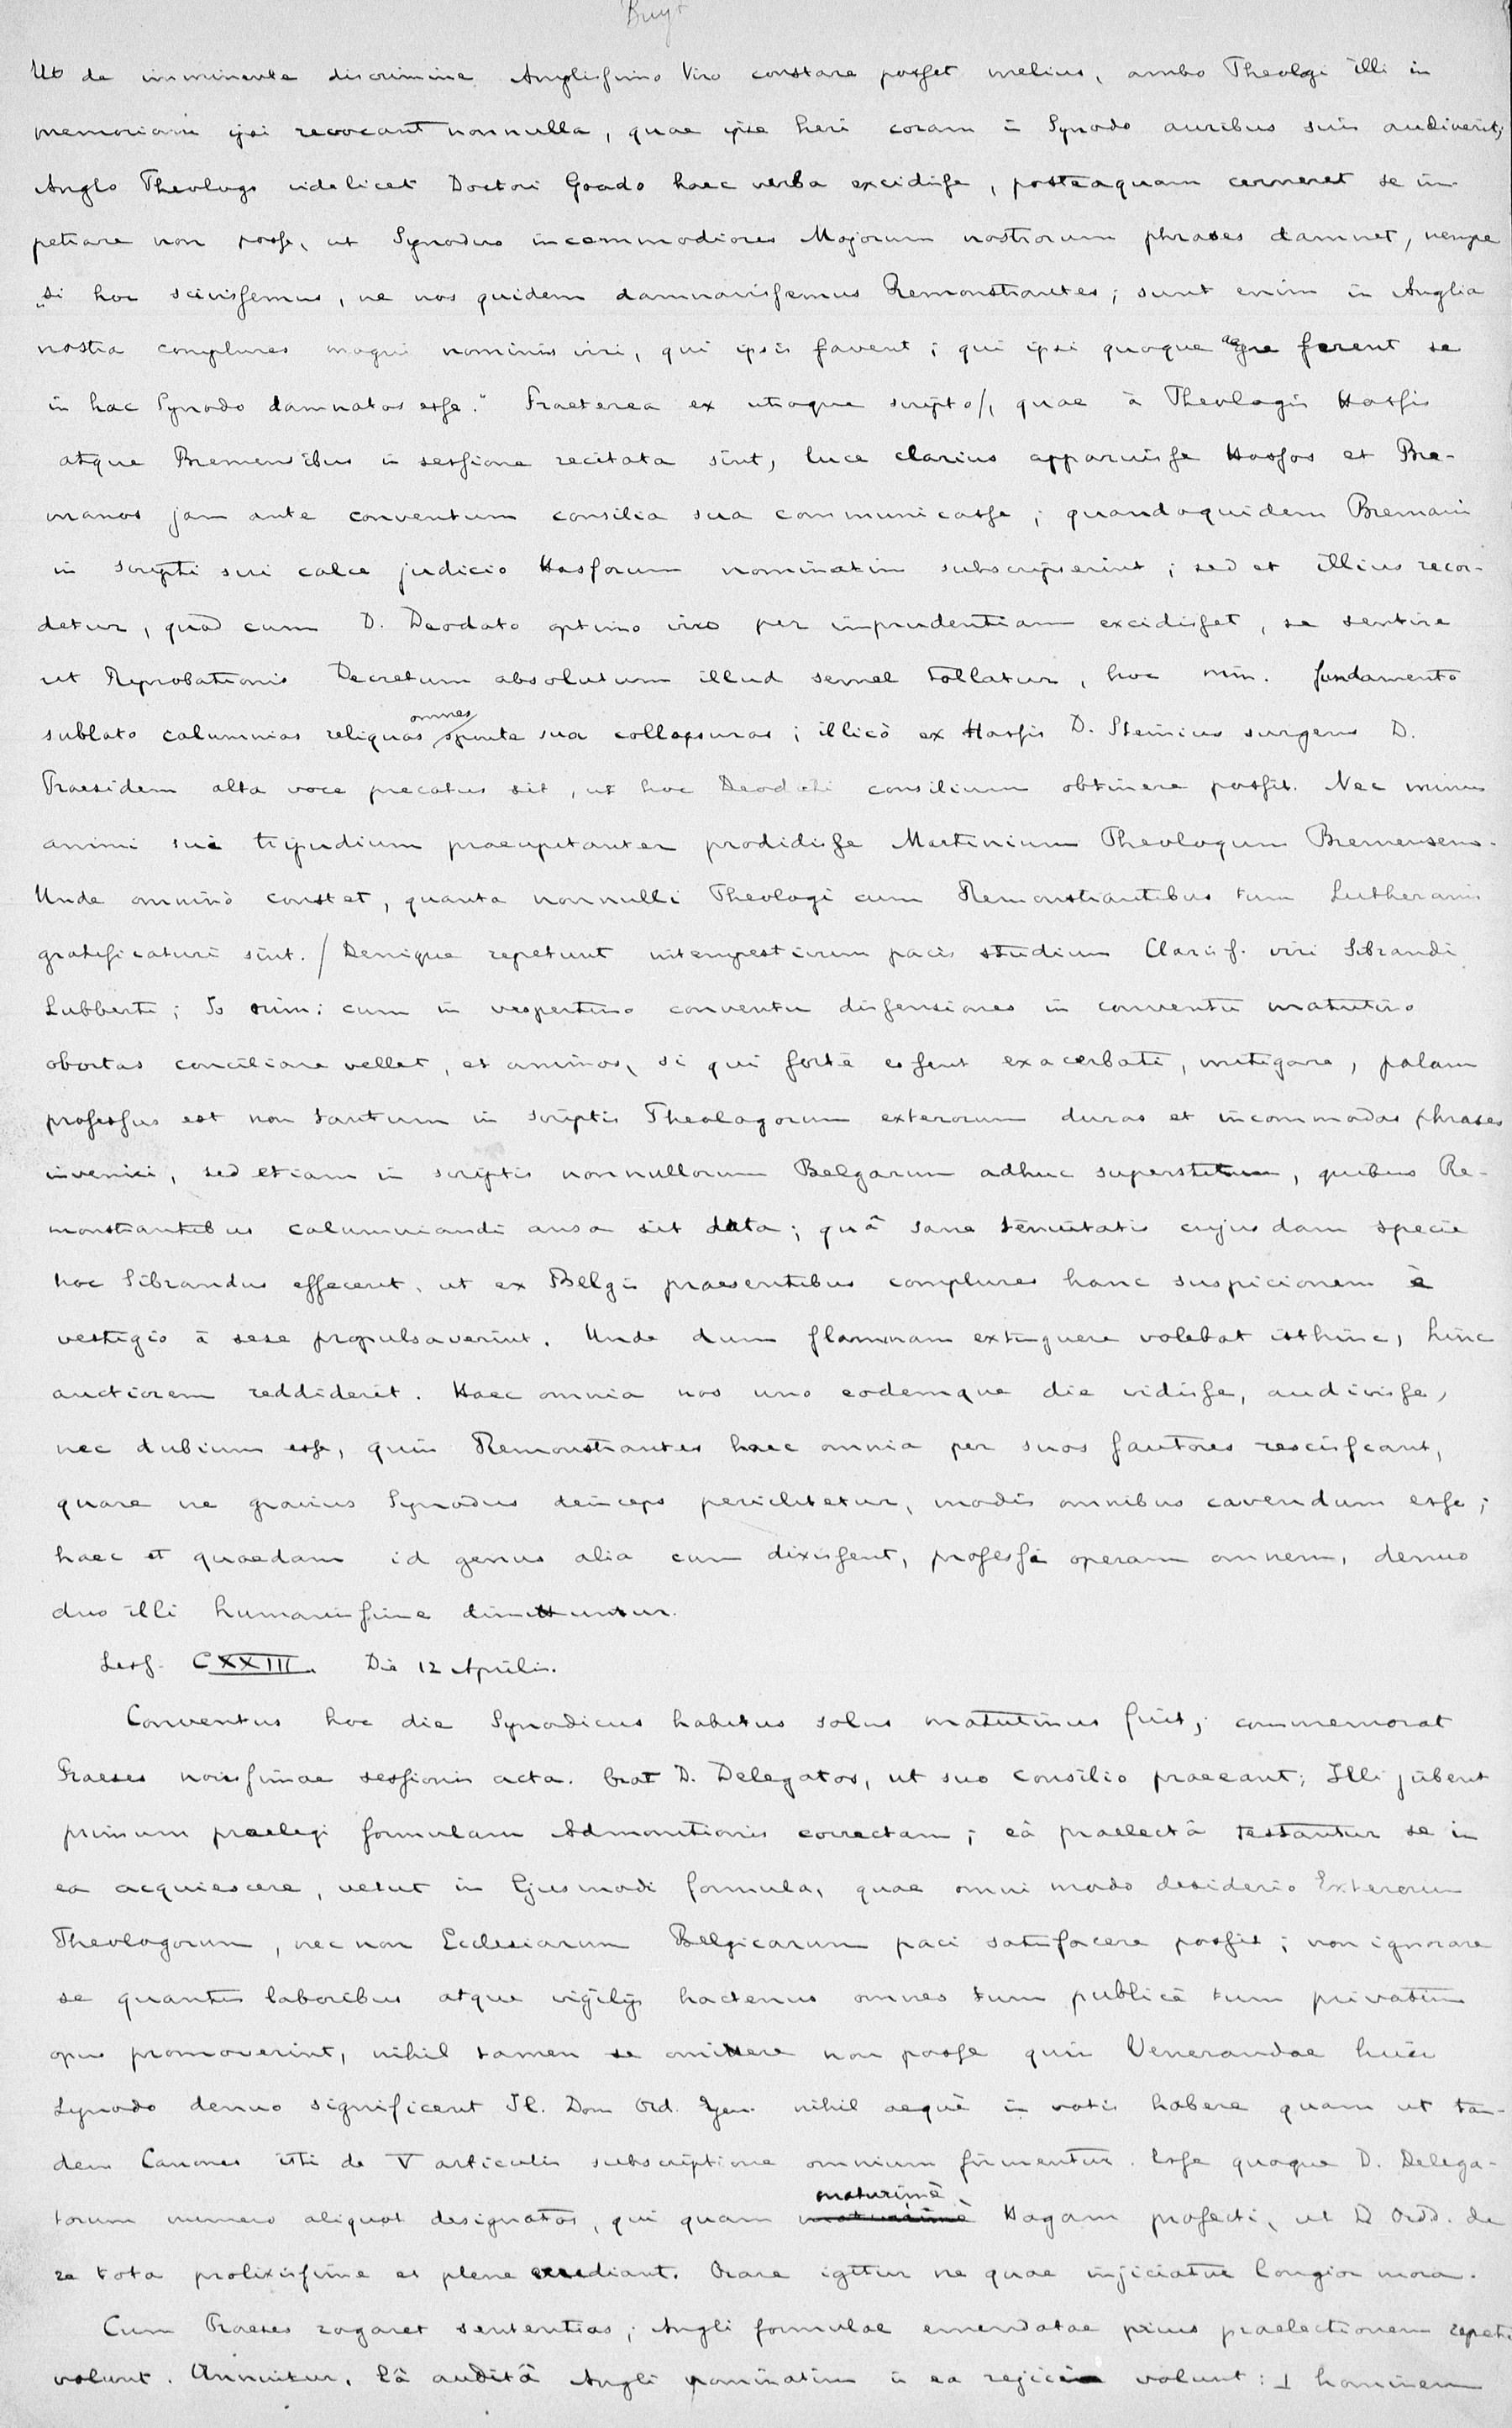 Buyt
Ut de imminente discrimine Amplissimo Viro constare posset melius, ambo Theologi illi in
memoriam ipsi revocant nonnulla, quae ipse heri coram in Synodo auribus suis audiverit;
Anglo Theologo videlicet Doctori Goado haec verba excidisse, posteaquam cerneret se im-
petrare non posse, ut Synodus incommodiores Majorum nostrorum phrases damnet, nempe
„si hoc scivissemus, ne nos quidem damnavissemus Remonstrantes; sunt enim in Anglia
nostra complures magni nominis viri, qui ipsis favent; qui ipsi quoque aegre ferent se
in hac Synodo damnatos esse.“ Praeterea ex utroque scripto/, quae à Theologis Hassis
atque Bremensibus in sessione recitata sint, luce clarius apparuisse Hassos et Bre-
manos jam ante conventum consilia sua communicasse; quandoquidem Bremani
in scripti sui calce judicio Hassorum nominatim subscripserint; sed et illius recor-
detur, quod cum D. Deodato optimo viro per imprudentiam excidisset, se sentire
ut Reprobationis Decretum absolutum illud semel tollatur, hoc nim. fundamento
sublato calumnias reliquas omnes sponte sua collapsuras; illicò ex Hassis D. Steinius surgens D.
Praesidem alta voce precatus sit, ut hoc Deodati consilium obtinere possit. Nec minus
animi sui tripudium praecipitanter prodidisse Martinium Theologum Bremensem.
Unde omninò constet, quanta nonnulli Theologi cum Remonstrantibus tum Lutheranis
gratificaturi sint. / Denique repetunt intempestivum pacis studium Clariss. viri Sibrandi
Lubberti; Is nim: cum in vespertino conventu dissensiones in conventu matutino
obortas conciliare vellet, et animos, si qui fortè essent exacerbati, mitigare, palam
professus est non tantum in scriptis Theologorum exterorum duras et incommodas phrases
inveniri, sed etiam in scriptis nonnullorum Belgarum adhuc superstitum, quibus Re-
monstrantibus calumniandi ansa sit data; quâ sane lenitatis cujusdam specie
hoc Sibrandus effecerit, ut ex Belgis praesentibus complures hanc suspicionem è
vestigio à sese propulsaverint. Unde dum flammam extinguere volebat isthinc, hinc
auctiorem reddiderit. Haec omnia nos uno eodemque die vidisse, audivisse,
nec dubium esse, quin Remonstrantes haec omnia per suos fautores resciscant,
quare ne gravius Synodus deinceps periclitetur, modis omnibus cavendum esse;
haec et quaedam id genus alia cum dixissent, professi operam omnem, denuo
duo illi humanissime dimittuntur.
Sess. CXXIII. Die 12 Aprilis.
Conventus hoc die Synodicus habitus solus matutinus fuit; commemorat
Praeses novissimae sessionis acta. Orat D. Delegatos, ut suo consilio praeeant; Illi jubent
primum praelegi formulam Admonitionis correctam; eâ praelectâ testantur se in
ea acquiescere, velut in Ejusmodi formula, quae omni modo desiderio Exterorum
Theologorum, nec non Ecclesiarum Belgicarum paci satisfacere possit; non ignorare
se quantis laboribus atque vigilijs hactenus omnes tum publicè tum privatim
opus promoverint, nihil tamen se omittere non posse quin Venerandae huic
Synodo denuo significent Ill. Dom Ord. Gen. nihil aequè in votis habere quam ut tan-
dem Canones isti de V articulis subscriptione omnium firmentur. Esse quoque D. Delega-
torum numero aliquot designatos, qui quam maturimè Hagam profecti, ut D. Ordd. de
re tota prolixissime et plene erudiant. Orare igitur ne quae injiciatur longior mora.
Cum Praeses rogaret sententias; Angli formulae emendatae prius praelectionem repeti
volunt. Annuitur. Eâ auditâ Angli nominatim in ea rejici volunt: 1 hominem